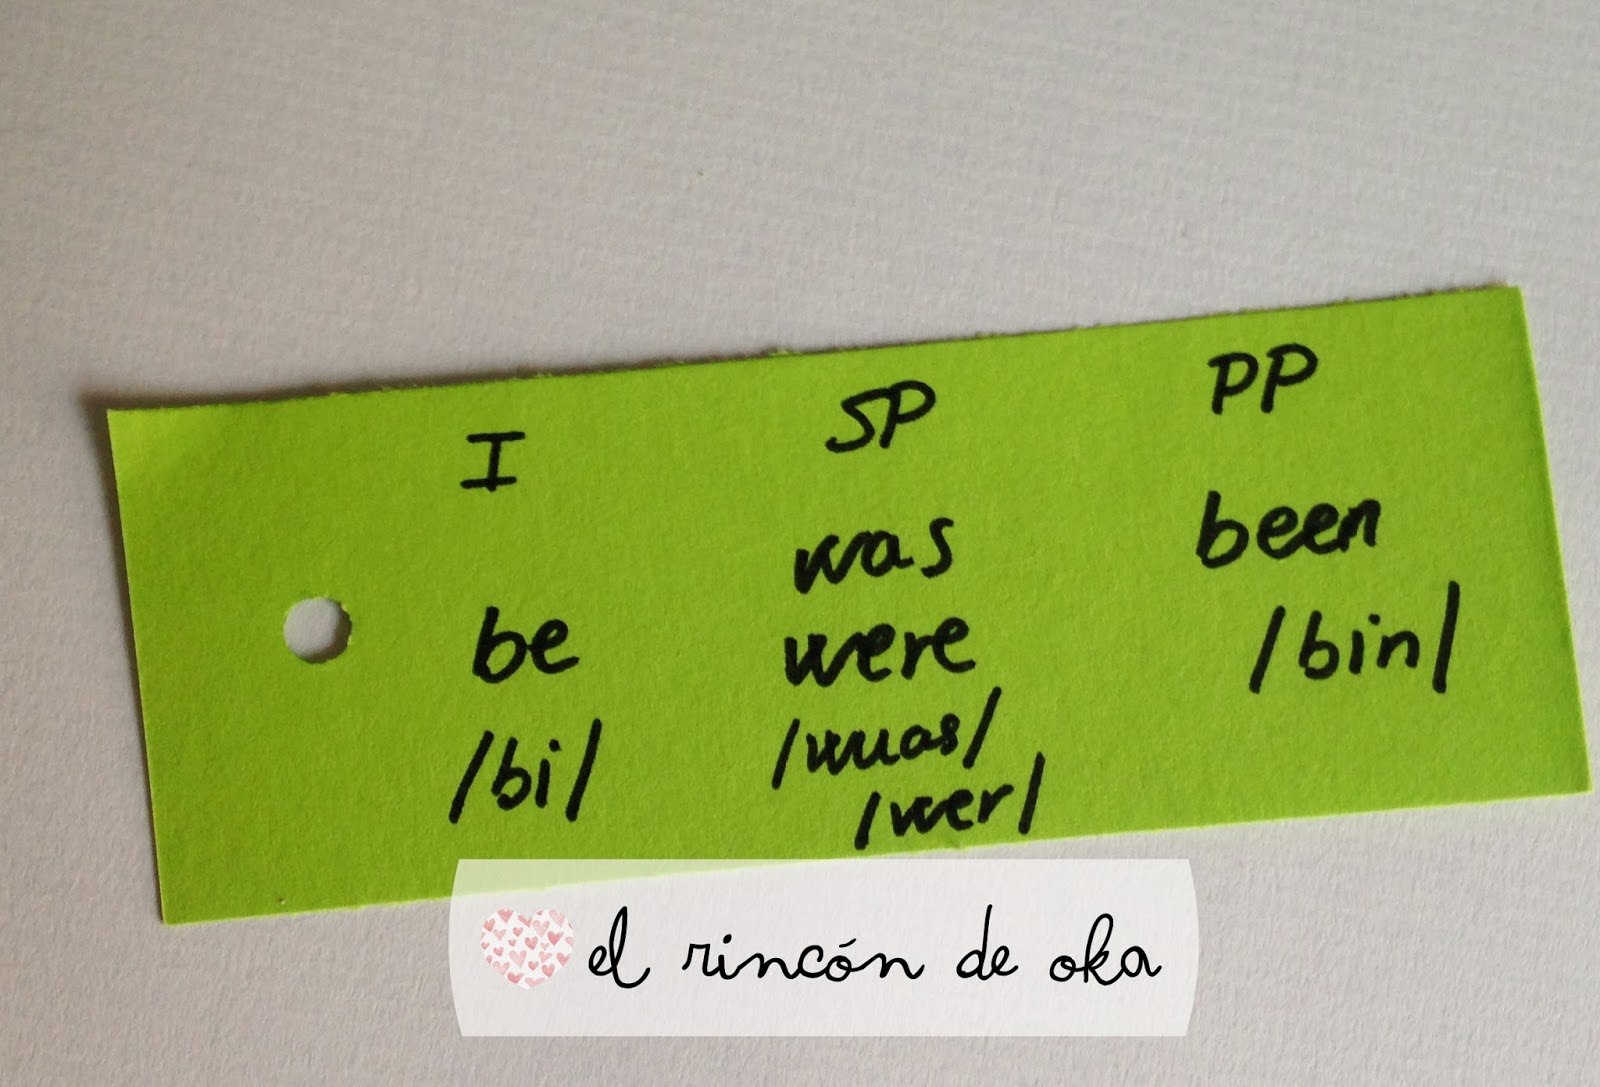 I SP PP
was been
be were /bin/
/bi/ /wuas/
/wer/
el rincón de oka